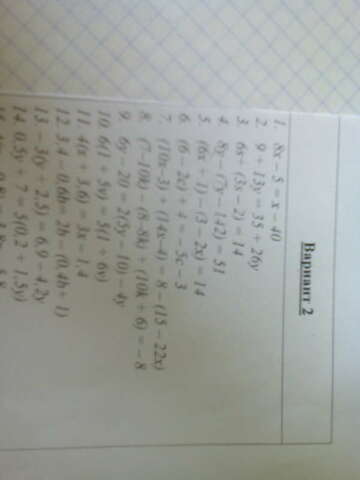 Вариант 2
1. 8x – 5 = x – 40
2. 9 + 13y = 35 + 26y
3. 6x + (3x – 2) = 14
4. 8y – (7y – 142) = 51
5. (6x + 1) – (3 – 2x) = 14
6. (6 – 2c) + 4 = – 5c – 3
7. (10x–3) + (14x–4) = 8 – (15 – 22x)
8. (7–10k) – (8–8k) + (10k + 6) = – 8
9. 6y – 20 = 2(5y – 10) – 4y
10. 6(1 + 5y) = 5(1 + 6y)
11. 4(x + 3.6) = 3x – 1.4
12. 3.4 – 0.6b = 2b – (0.4b + 1)
13. – 3(y + 2.5) = 6.9 – 4.2y
14. 0.5y + 7 = 5(0.2 + 1.5y)